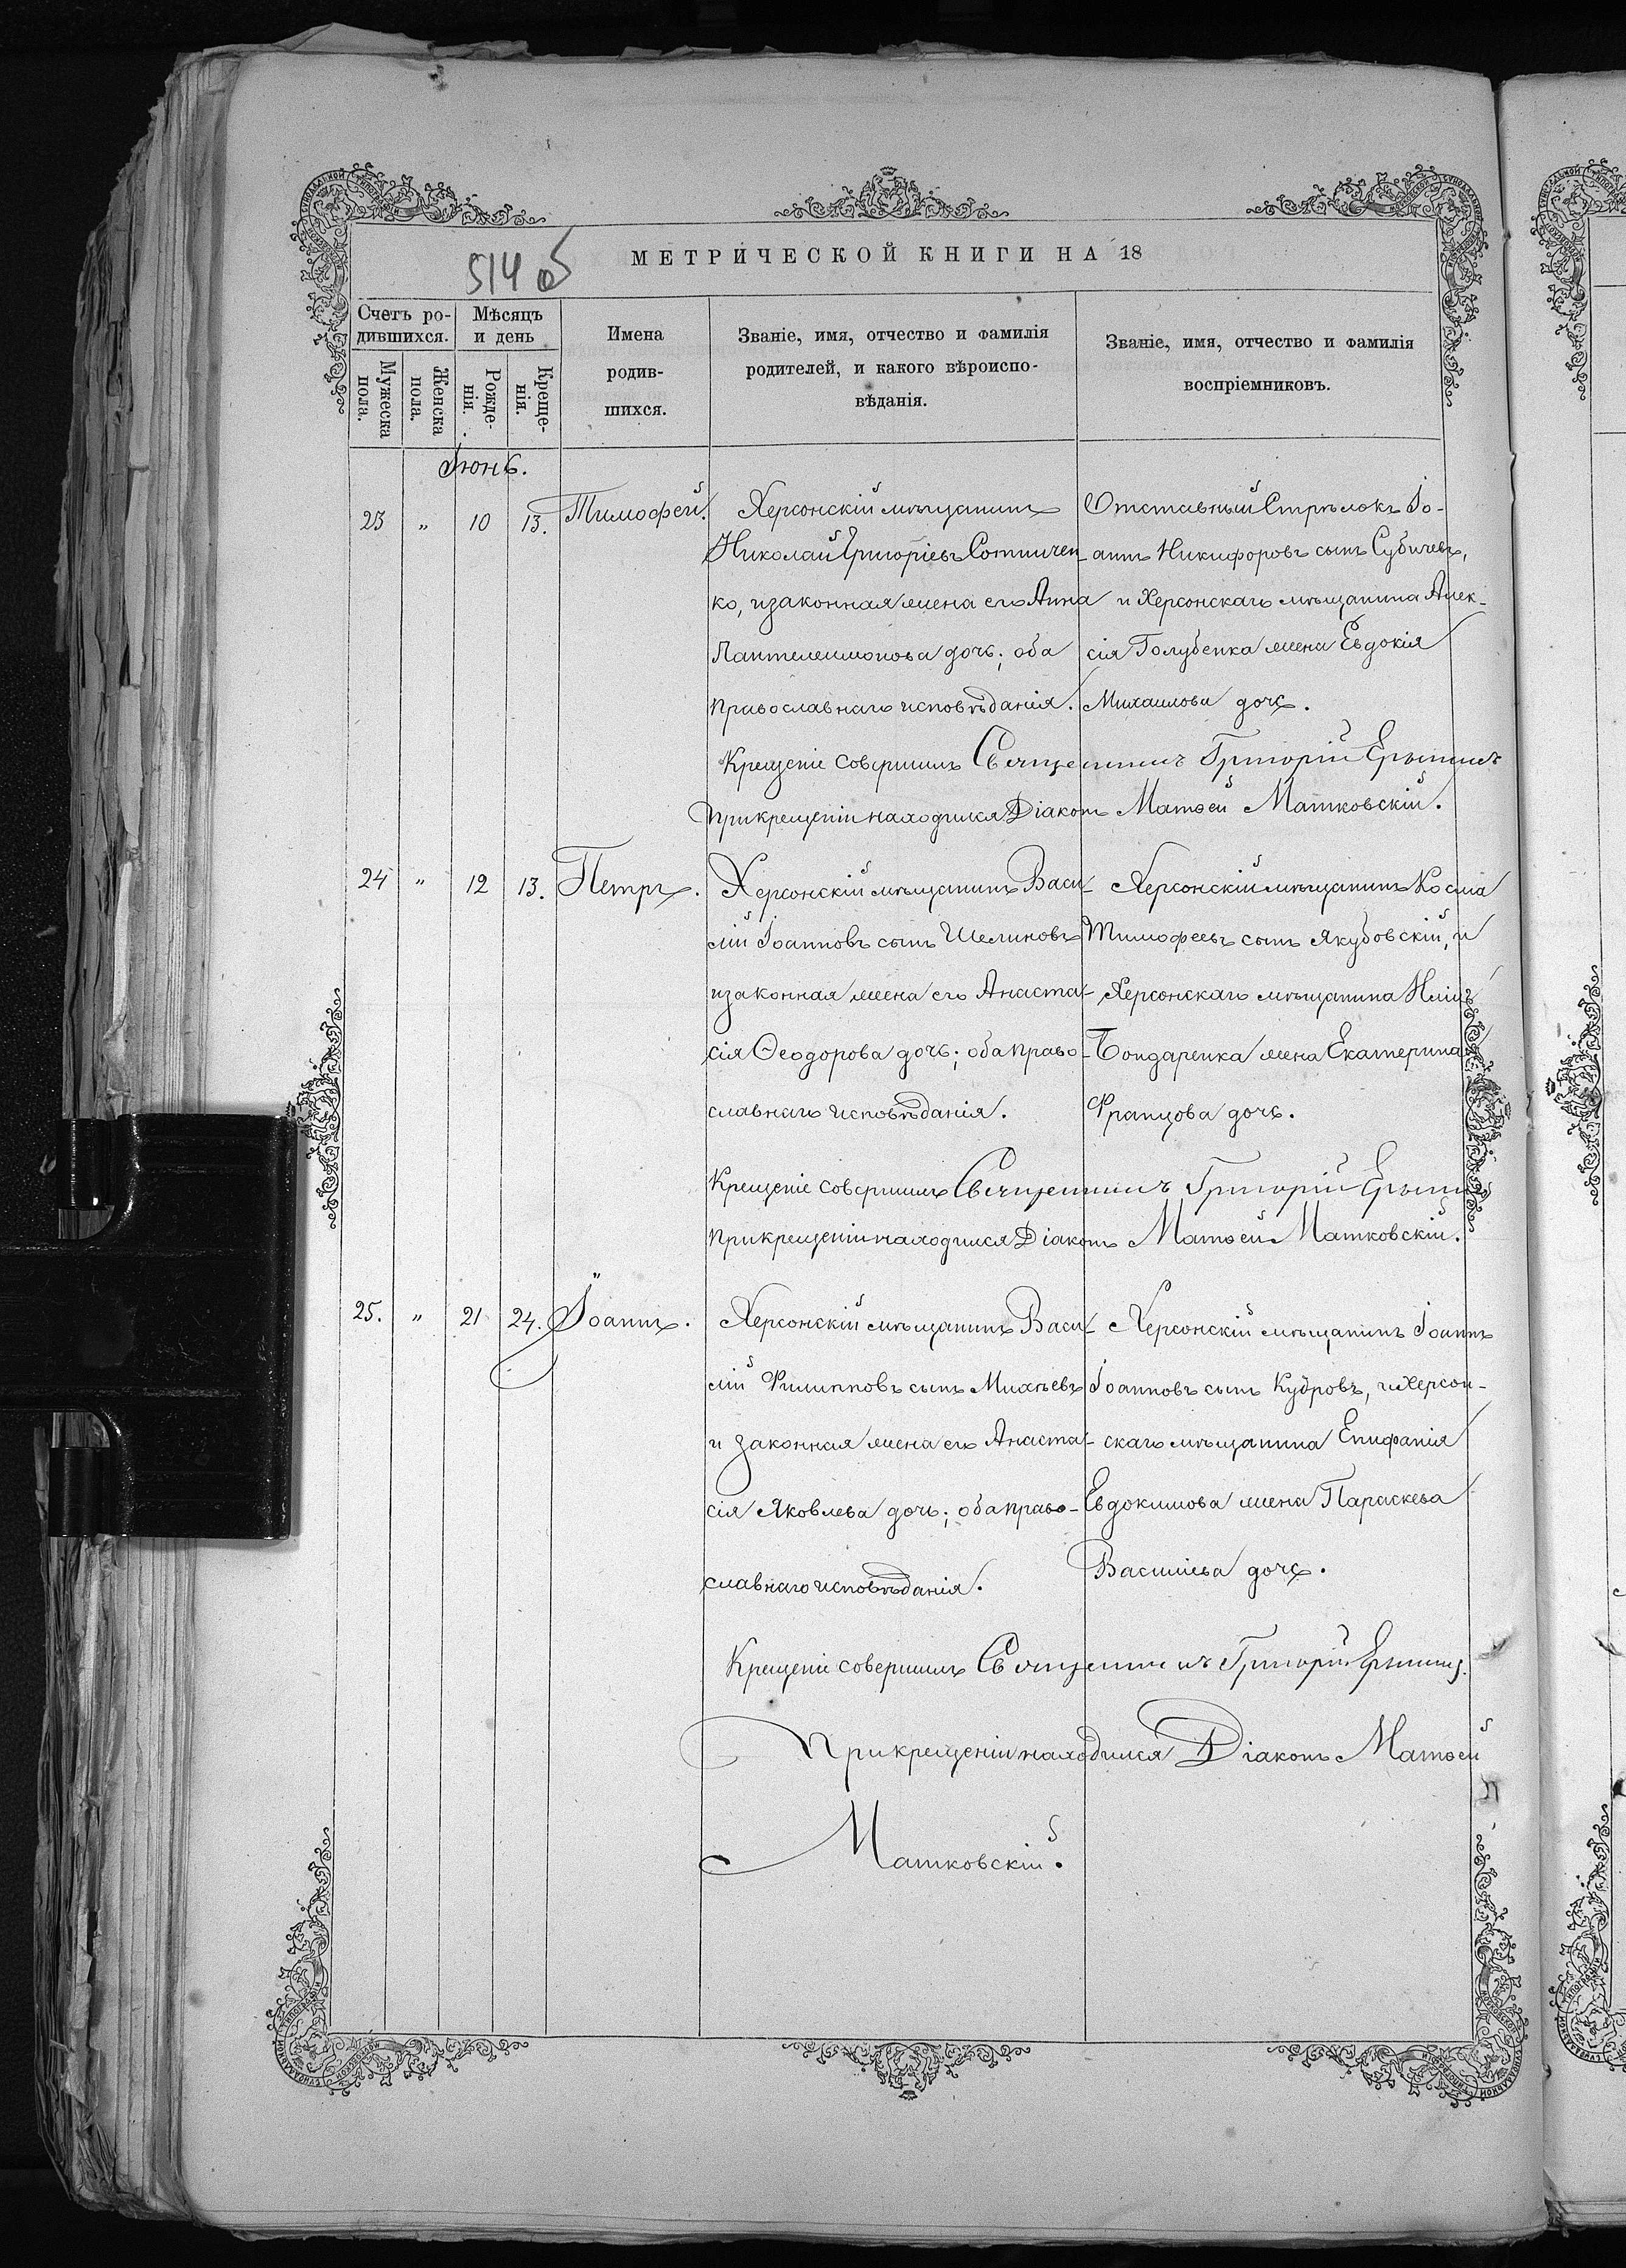 514 об
МЕТРИЧЕСКОЙ КНИГИ НА 18
Счетъ ро-
дившихся.
Мѣсяцъ
и день
Имена
родив-
шихся.
Званіе, имя, отчество и фамилія
родителей, и какого вѣроиспо-
вѣданія.
Званіе, имя, отчество и фамилія
воспріемниковъ.
Мужеска
пола.
Женска
пола.
Рожде-
нія.
Креще-
нія.
Іюнь.
23 " 10 13. Тимофей.
Херсонскій мѣщанинъ
Николай Григоріевъ Сотничен-
ко, и законная жена его Анна
Пантелеимонова дочь; оба
православнаго исповѣданія.
Отставный Стрѣлокъ Іо-
аннъ Никифоровъ сынъ Субичевъ,
и Херсонскаго мѣщанина Алек-
сія Голубенка жена Евдокія
Михаилова дочь.
Крещеніе совершилъ Священникъ Григорій
При крещеніи находился Діаконъ Матѳей Матковскій.
24 " 12 13. Петръ.
Херсонскій мѣщанинъ Васи-
лій Іоанновъ сынъ Шелиховъ
и законная жена его Анаста-
сія Ѳеодорова дочь; оба право-
славнаго исповѣданія.
Херсонскій мѣщанинъ Косма
Тимофеевъ сынъ Якубовскій, и
Херсонскаго мѣщанина Иліи
Бондаренка жена Екатерина
Францова дочь.
Крещеніе совершилъ Священникъ Григорій
При крещеніи находился Діаконъ Матѳей Матковскій.
25. " 21 24. Іоаннъ.
Херсонскій мѣщанинъ Васи-
лій Филипповъ сынъ Михѣевъ
и законная жена его Анаста-
сія Яковлева дочь; оба право-
славнаго исповѣданія.
Херсонскій мѣщанинъ Іоаннъ
Іоанновъ сынъ Кудровъ, и Херсон-
скаго мѣщанина Епифанія
Евдокимова жена Параскева
Василіева дочь.
Крещеніе совершилъ Священникъ Григорій
При крещеніи находился Діаконъ Матѳей
Матковскій.